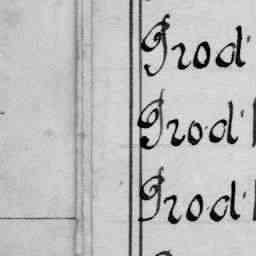 Prod'
Prod'
Prod'